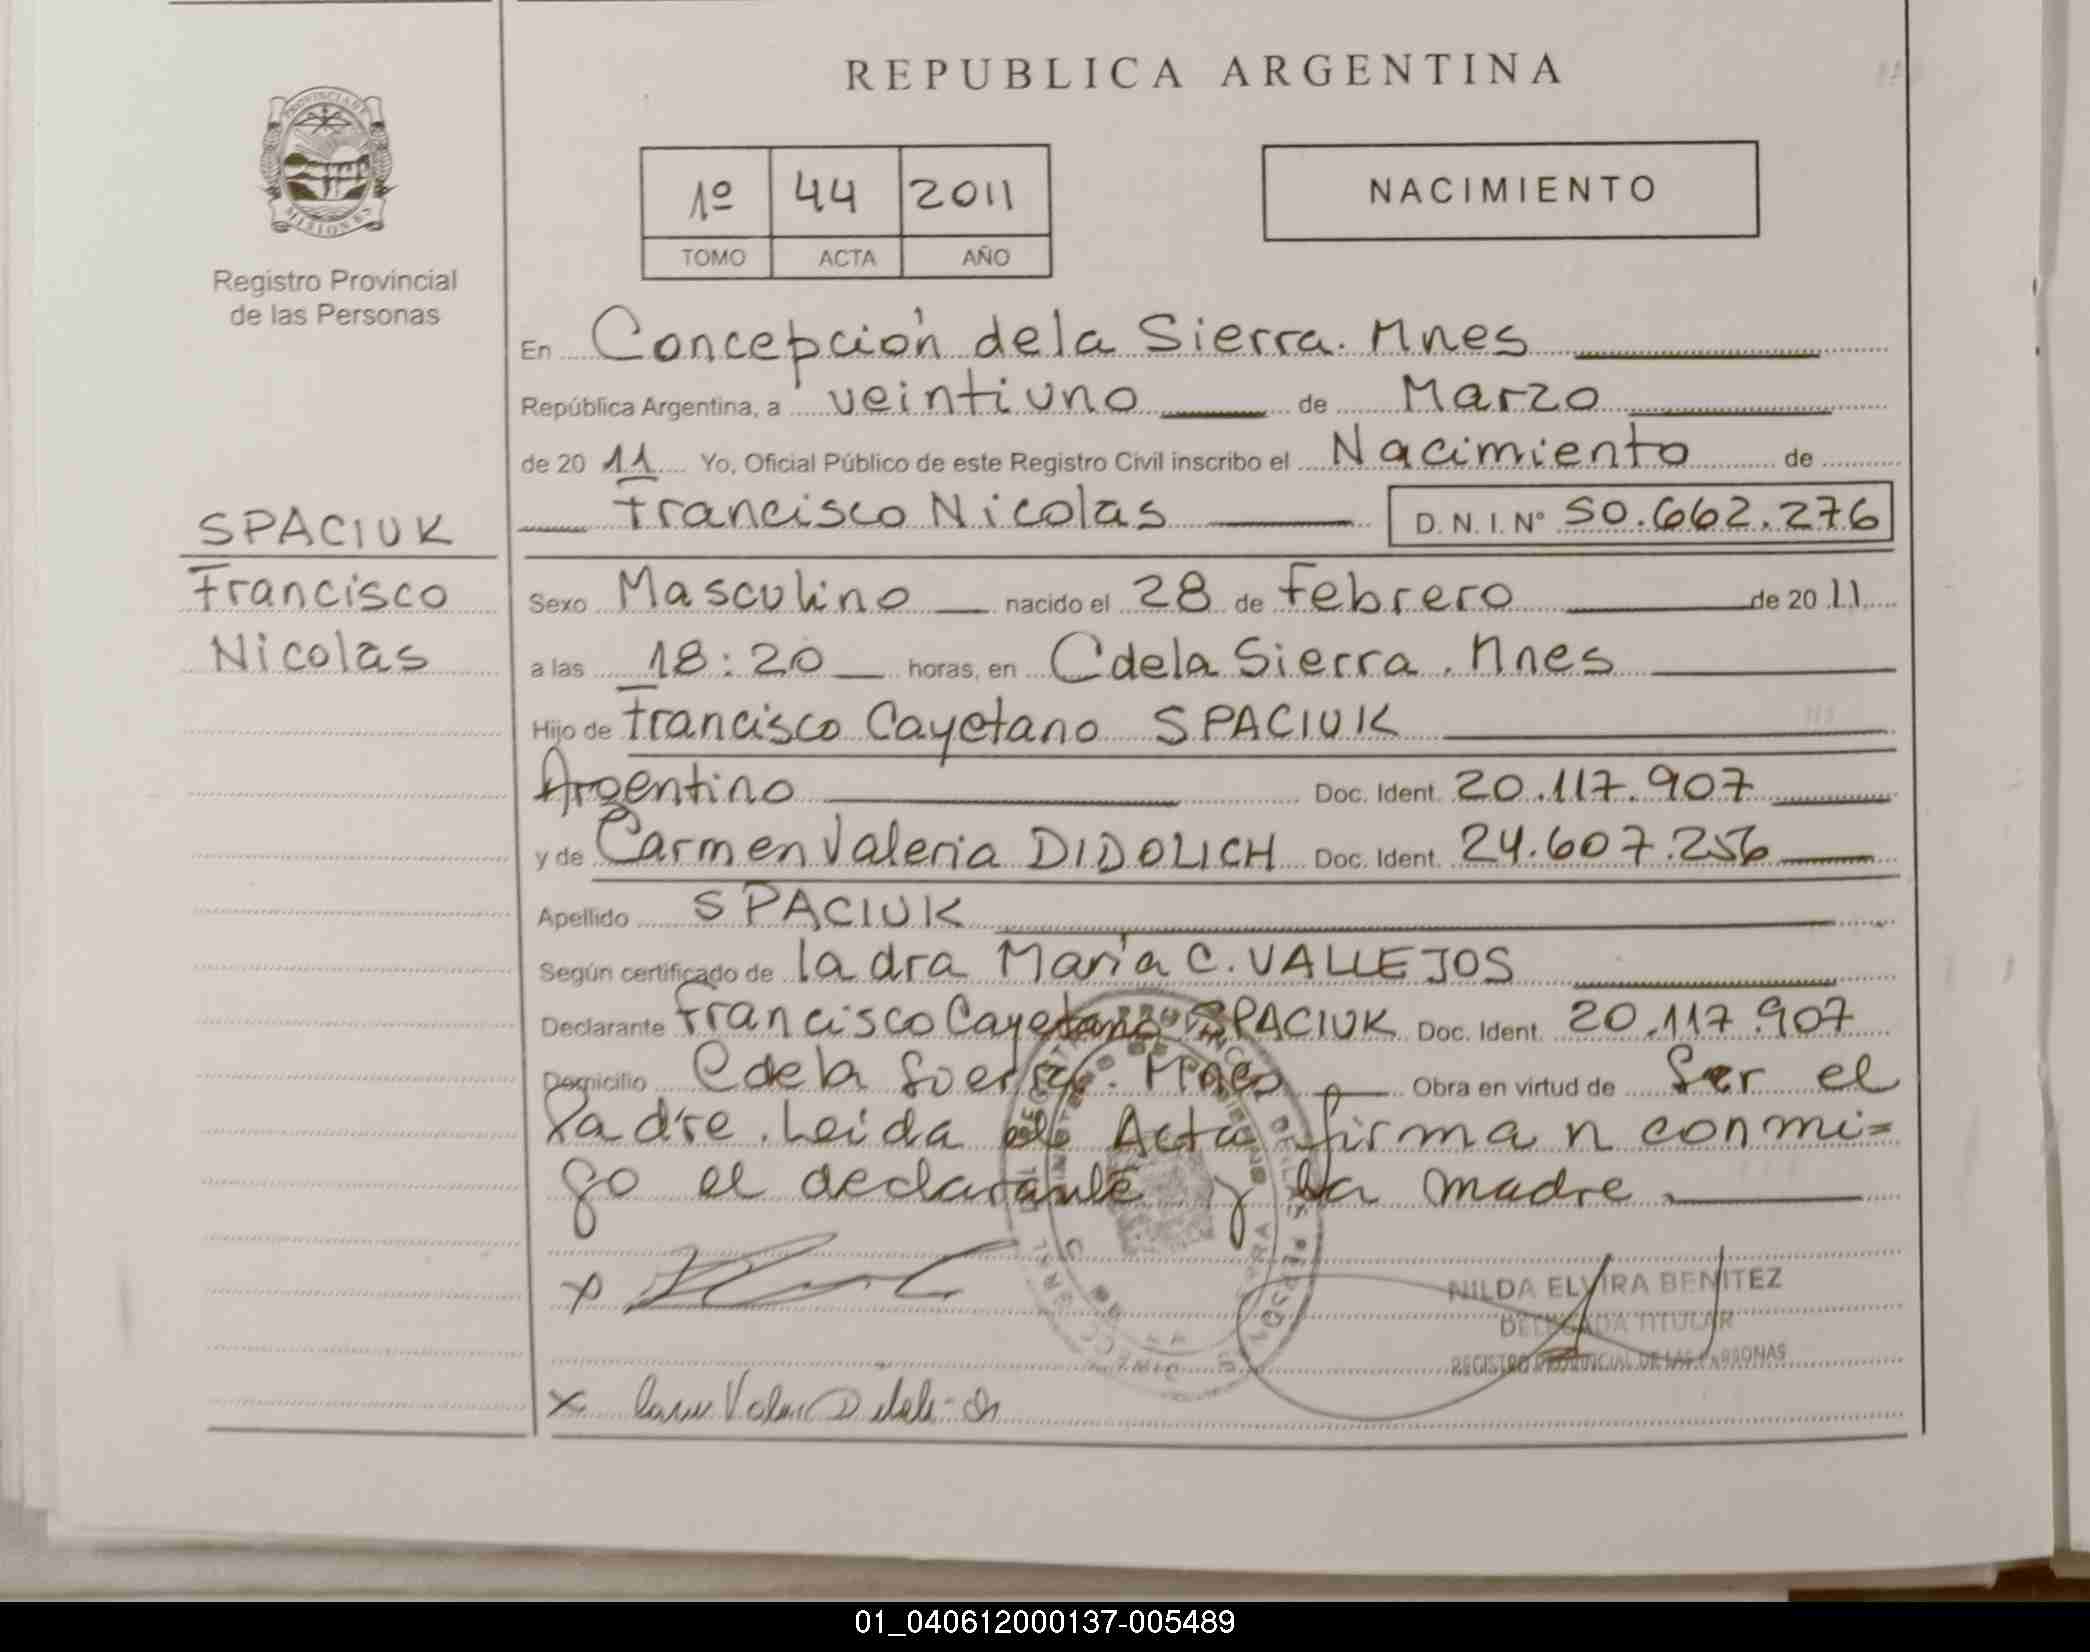 REPUBLICA ARGENTINA
PROVINCIA DE
MISIONES
Registro Provincial
de las Personas
1º 44 2011
TOMO ACTA AÑO
NACIMIENTO
En Concepción de la Sierra. Mnes
República Argentina, a veintiuno de Marzo
de 2011 Yo, Oficial Público de este Registro Civil inscribo el Nacimiento de
Francisco Nicolas D.N.I. Nº 50.662.276
SPACIUK
Francisco
Nicolas
Sexo Masculino nacido el 28 de Febrero de 2011
a las 18:20 horas, en C de la Sierra. Mnes
Hijo de Francisco Cayetano SPACIUK
Argentino Doc. Ident. 20.117.907
y de Carmen Valeria DIDOLICH Doc. Ident. 24.607.256
Apellido SPACIUK
Según certificado de la dra María C. VALLEJOS
Declarante Francisco Cayetano SPACIUK Doc. Ident. 20.117.907
Domicilio C de la Sierra. Mnes Obra en virtud de Ser el
Padre. Leida el Acta firman conmi=
go el declarante y la madre.
X
NILDA ELVIRA BENITEZ
DELEGADA TITULAR
REGISTRO PROVINCIAL DE LAS PERSONAS
X
01_040612000137-005489